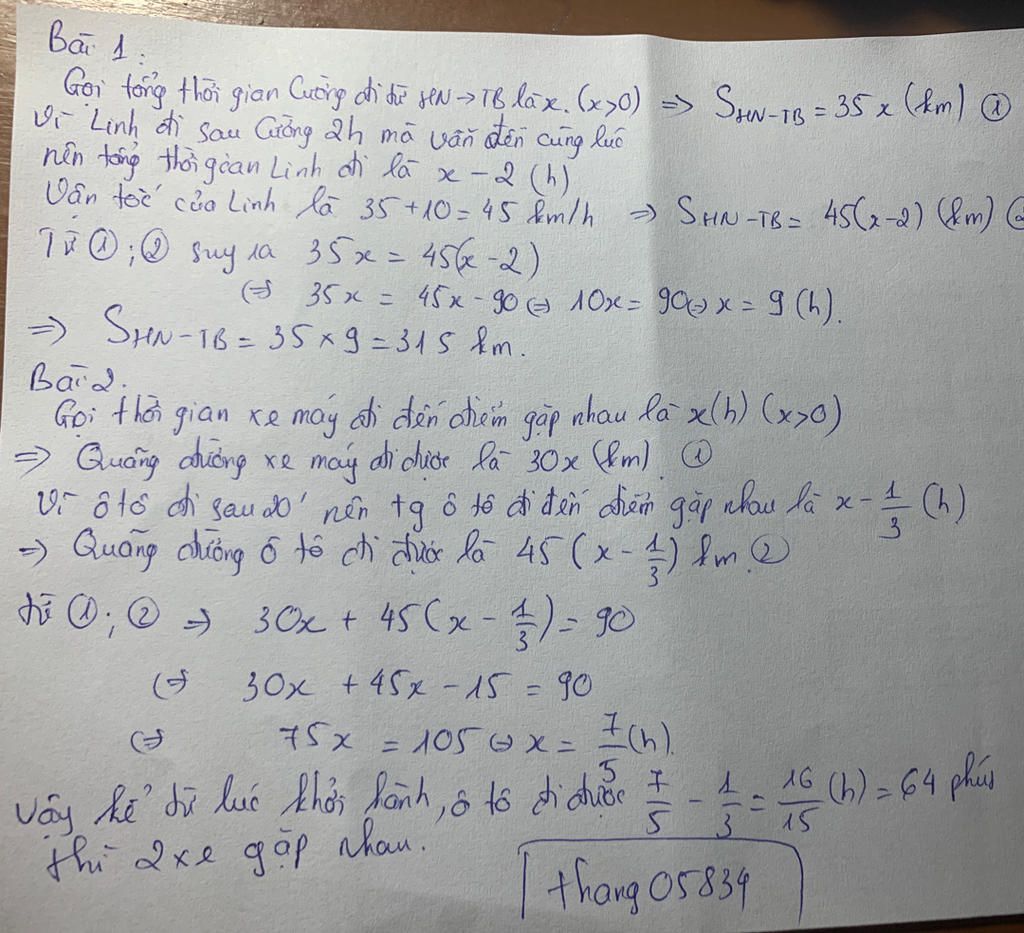 Bài 1:
Gọi tổng thời gian Cường đi từ HN → TB là x. (x>0) => S HN-TB = 35x (km) ①
Vì Linh đi sau Cường 2h mà vẫn đến cùng lúc
nên tổng thời gian Linh đi là x - 2 (h)
Vận tốc của Linh là 35 + 10 = 45 km/h => S HN-TB = 45(x-2) (km) ②
Từ ①; ② suy ra 35x = 45(x-2)
<=> 35x = 45x - 90 <=> 10x = 90 <=> x = 9 (h).
=> S HN-TB = 35 × 9 = 315 km.
Bài 2.
Gọi thời gian xe máy đi đến điểm gặp nhau là x(h) (x>0)
=> Quãng đường xe máy đi được là 30x (km) ①
Vì ô tô đi sau 20' nên tg ô tô đi đến điểm gặp nhau là x - 1/3 (h)
=> Quãng đường ô tô đi được là 45 (x - 1/3) km. ②
từ ①; ② => 30x + 45(x - 1/3) = 90
<=> 30x + 45x - 15 = 90
<=> 75x = 105 <=> x = 7/5 (h).
Vậy kể từ lúc khởi hành, ô tô đi được 7/5 - 1/3 = 16/15 (h) = 64 phút
thì 2 xe gặp nhau.
thang05834